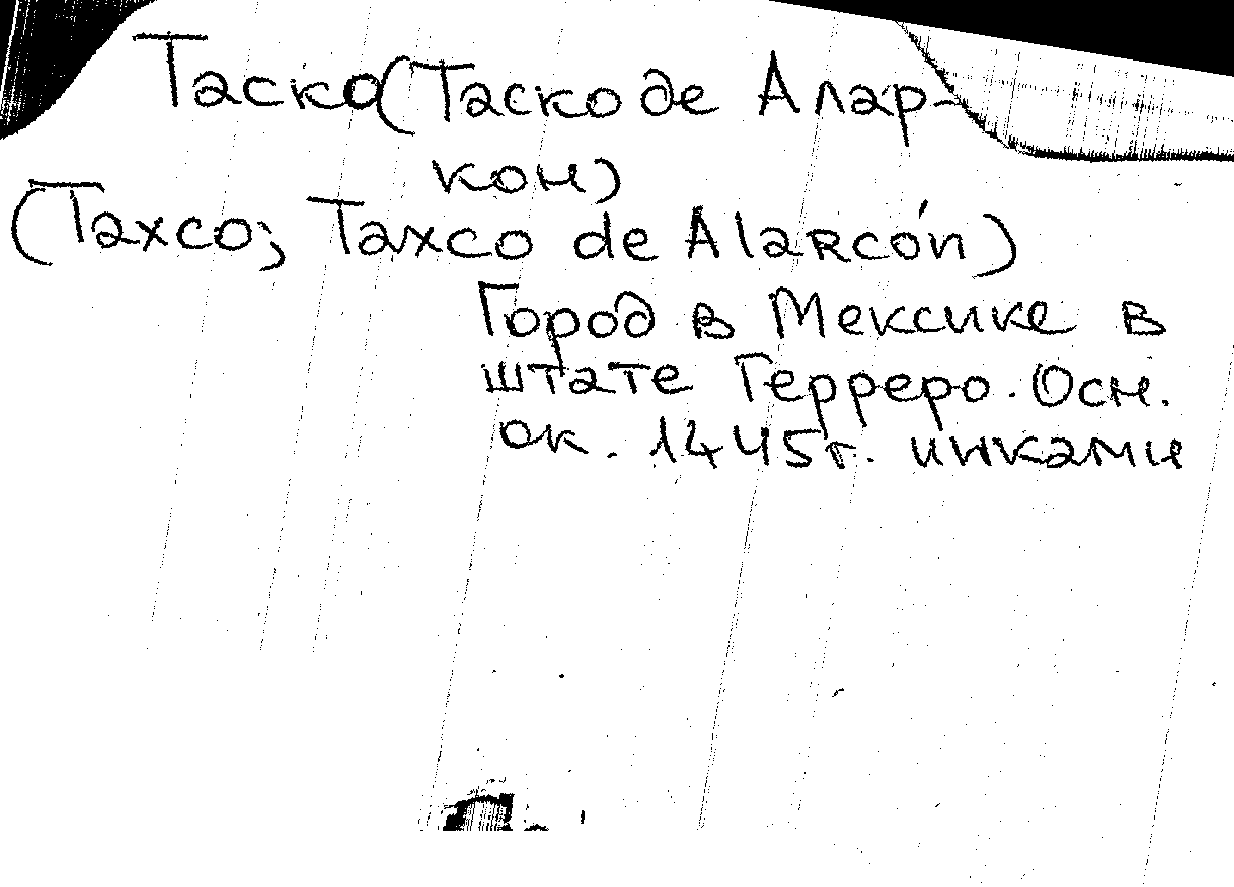 Таско (Таско де Алар-
кон)
(Taxco; Taxco de Alarcón)
Город в Мексике в
штате Герреро. Осн.
ок. 1445г. инками